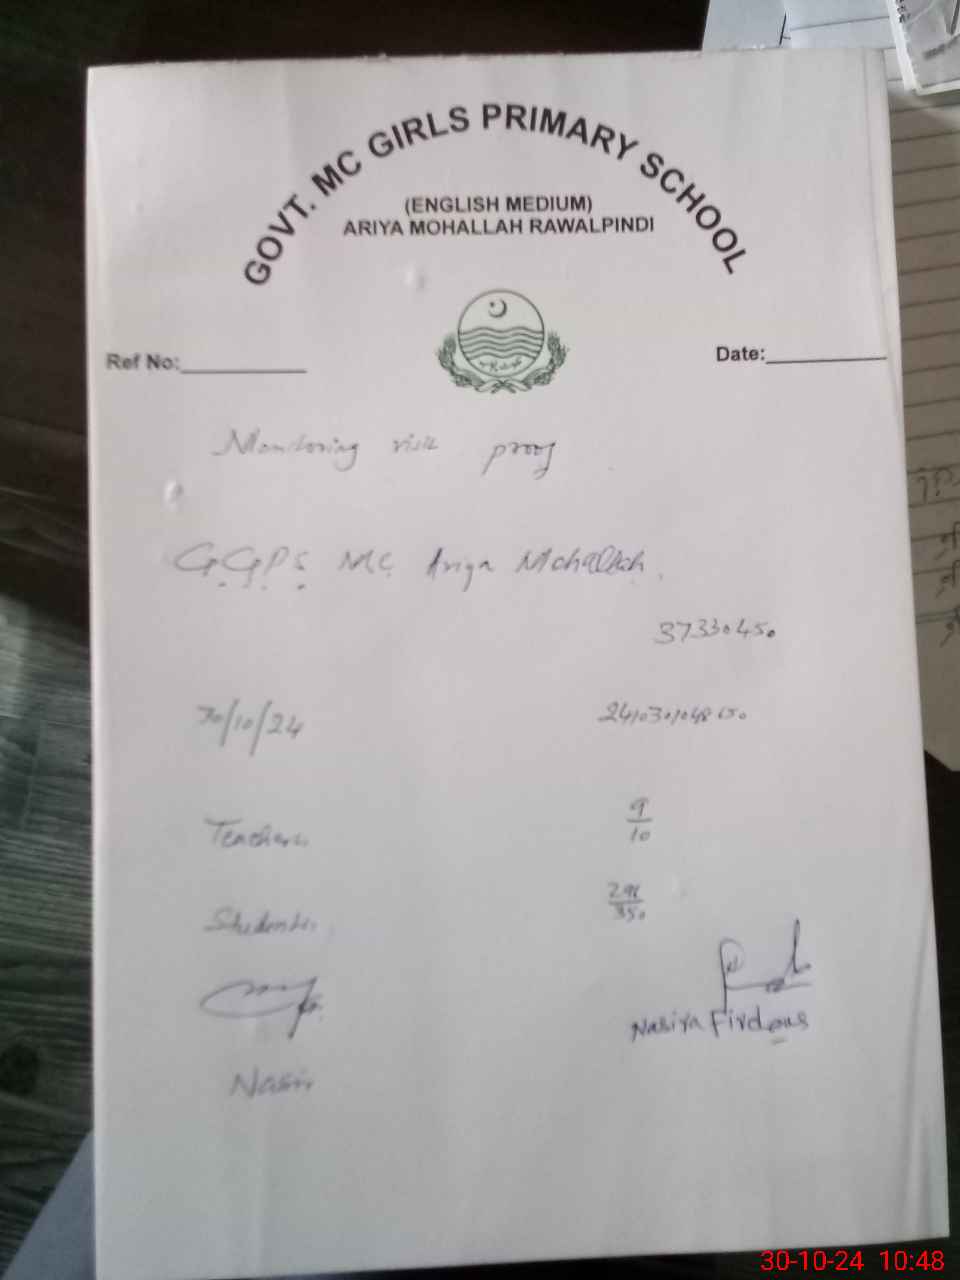 GOVT. MC GIRLS PRIMARY SCHOOL
(ENGLISH MEDIUM)
ARIYA MOHALLAH RAWALPINDI
Ref No:
Date:
Monitoring visit proof
G.G.P.S. MC Ariya Mohallah.
37330450
30/10/24
Teachers 9/10
Students 350
Nasir
Nasiya Firdous
30-10-24 10:48